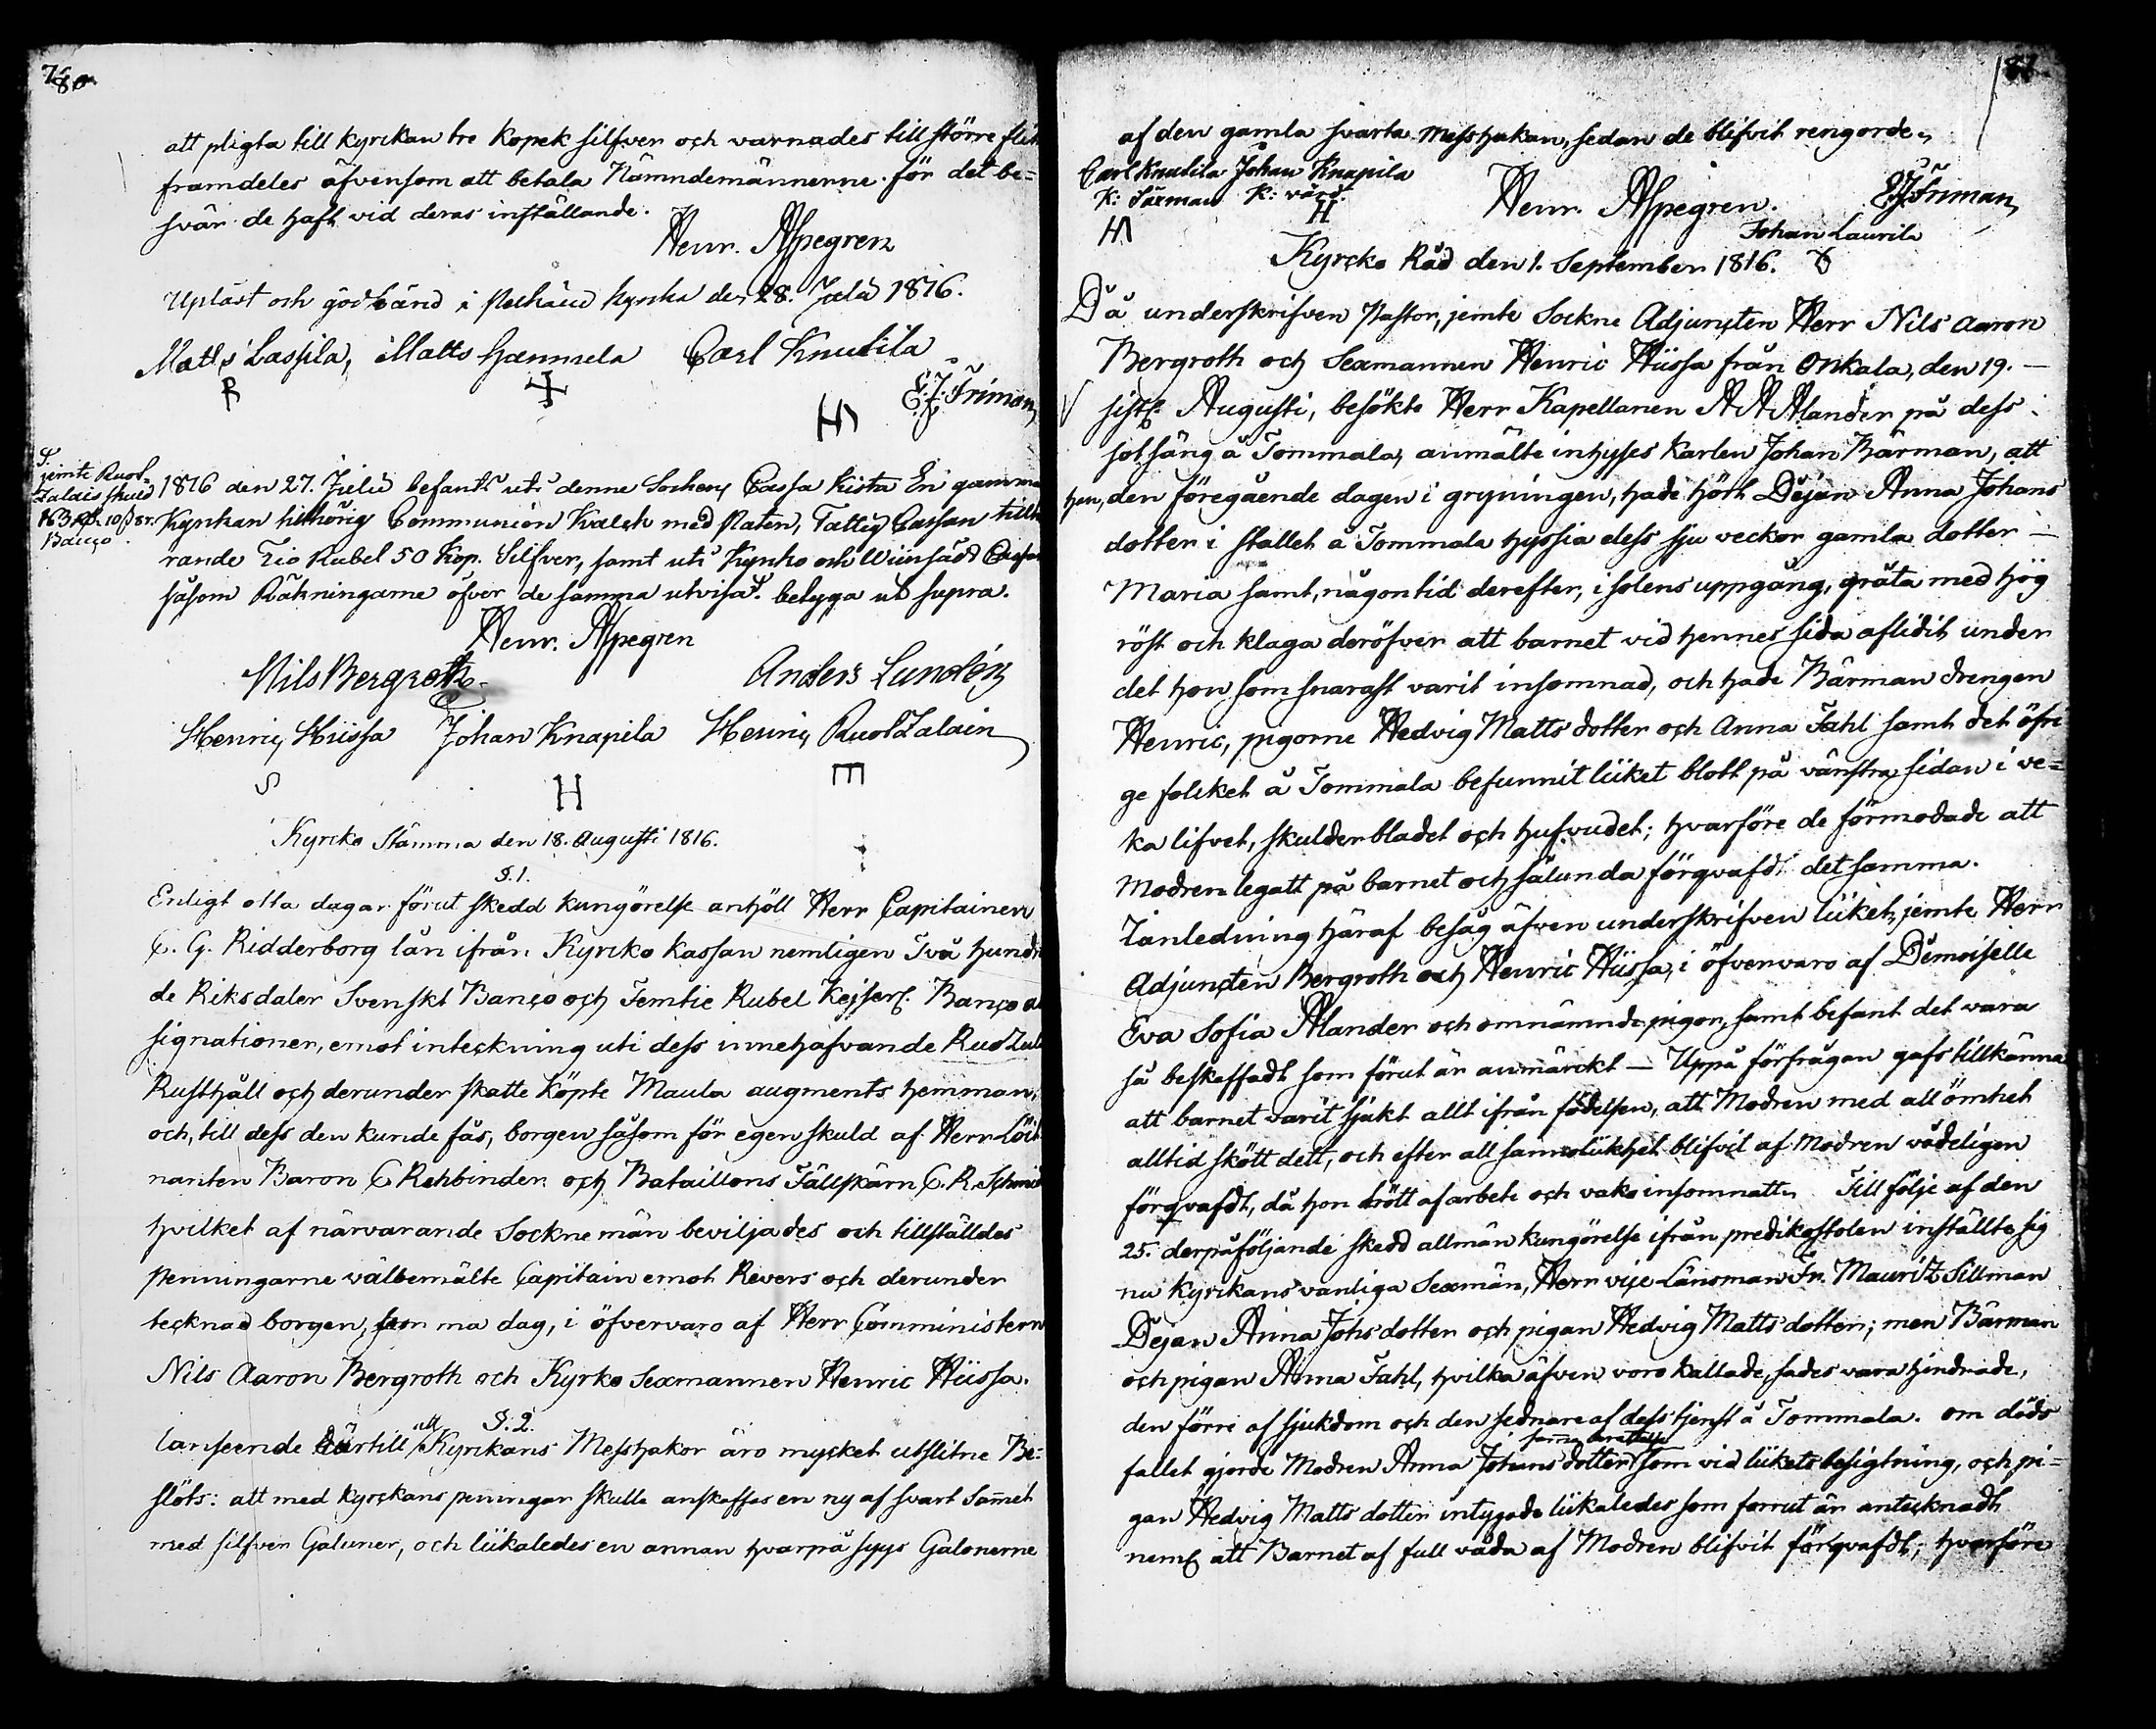 80
att pligta till kyrckan tre kopek silfver och varnades till större flit
framdeles äfvensom att betala Nämndemännerne för det be-
svär de haft vid deras inställande.
Henr. Alpegren
Upläst och godkänd i kyrka den 28. Julii 1816.
Matts Lassila, Matts Hammela Carl Knutila
E. J. Friman
jemte Ruot-
zalais skuld
163 Rd. 10 ß 8 r.
Banco
1816 den 27. Julii befants uti denne Sockens Cassa Kista En gamma
Kyrkan tillhörig Communion Kalck med Paten, Fattig Cassan tillh
rande Tio Rubel 50 Kop. Silfver, samt uti Kyrko och Wiinsädd Cassan
såsom Räkningarne öfver de samma utvisa. betyga ut supra.
Henr. Alpegren
Nils Bergroth Anders Lundén
Henric Hiissa Johan Knapila Henric Ruotzalain
S H E
Kyrcko Stämma den 18. Augusti 1816.
§. 1.
Enligt otta dagar förut skedd kungörelse anhöll Herr Capitainen
C. G. Ridderborg lån ifrån Kyrcko kassan nemligen Två hundra
de Riksdaler Svenskt Banco och Femtie Rubel Kejserl. Banco as
signationer, emot inteckning uti dess innehafvande Ruotzula
Rusthåll och derunder skatte köpte Maula augments hemman,
och, till dess den kunde fås, borgen såsom för egen skuld af Herr Löit
nanten Baron C Rehbinder och Bataillons Fältskärn C. R. Schmid
hvilket af närvarande Sockne män beviljades och tillställdes
penningarne välbemälte Capitain emot Revers och derunder
tecknad borgen, sam ma dag, i öfvervaro af Herr Comministern
Nils Aaron Bergroth och Kyrko Sexmannen Henric Hiissa.
§. 2.
I anseende härtill att Kyrckans Messhakor äro mycket utslitne Be-
slöts: att med kyrckans peningar skulle anskaffas en ny af svart Sam̄et
med silfver Galuner, och liikaledes en annan hvarpå syys Galonerne
af den gamla svarta Messhakan, sedan de blifvit rengorde.
Carl Knutila Johan Knapila
K: Säxman K: värd.
Henr. Alpegren. E. J. Friman
Johan Laurila
Kyrcko Råd den 1. September 1816.
Då underskrifven Pastor, jemte Sockne Adjuncten Herr Nils Aaron
Bergroth och Sexmannen Henric Hiissa från Onkala, den 19. —
sistl. Augusti, besökte Herr Kapellanen A A Alander på dess
sotsäng å Tommala, anmälte inhyses karlen Johan Bärman, att
han, den föregående dagen i gryningen, hade hört Dejan Anna Johans
dotter i stallet å Tommala hyssia dess sju veckor gamla dotter —
Maria samt, någon tid derefter, i solens uppgång, gråta med hög
röst och klaga deröfver att barnet vid hennes sida aflidit under
det hon som snarast varit insomnad, och hade Bärman drengen
Henric, pigorne Hedvig Matts dotter och Anna Fahl samt det öfri
ge folcket å Tommala befunnit liiket blått på vänstra sidan i ve-
ka lifvet, skulderbladet och hufvudet; hvarföre de förmodade att
Modren legatt på barnet och sålunda förqvafdt det samma.
I anledning häraf besåg äfven underskrifven liiket, jemte Herr
Adjuncten Bergroth och Henric Hiissa, i öfvervaro af Demoiselle
Eva Sofia Alander och omnämnde pigor, samt befant det vara
så beskaffadt som förut är anmärckt — Uppå förfrågan gafs tillkänna
att barnet varit sjukt allt ifrån födelsen, att Modren med all ömhet
alltid skött dett, och efter all sannoliikhet blifvit af Modren vådeligen
förqvafdt, då hon trött af arbete och vaka insomnatt. Till följe af den
25. derpåföljande skedd allmän kungörelse ifrån predikostolen inställte sig
nu Kyrckans vanliga Sexmän, Herr vice Länsman Fr. Mauritz Sillman
Dejan Anna Johs dotter och pigan Hedvig Matts dotter; men Bärman
och pigan Anna Fahl, hvilka äfven voro kallade, sades vara hindrade,
den förre af sjukdom och den sednare af dess tjenst å Tommala. Om döds
fallet gjorde Modren Anna Johans dotter samma berättelse som vid liikets besigtning, och pi-
gan Hedvig Matts dotter intygade liikaledes som förrut är antecknadt
neml att Barnet af full våda af Modren blifvit förqvafdt; hvarföre